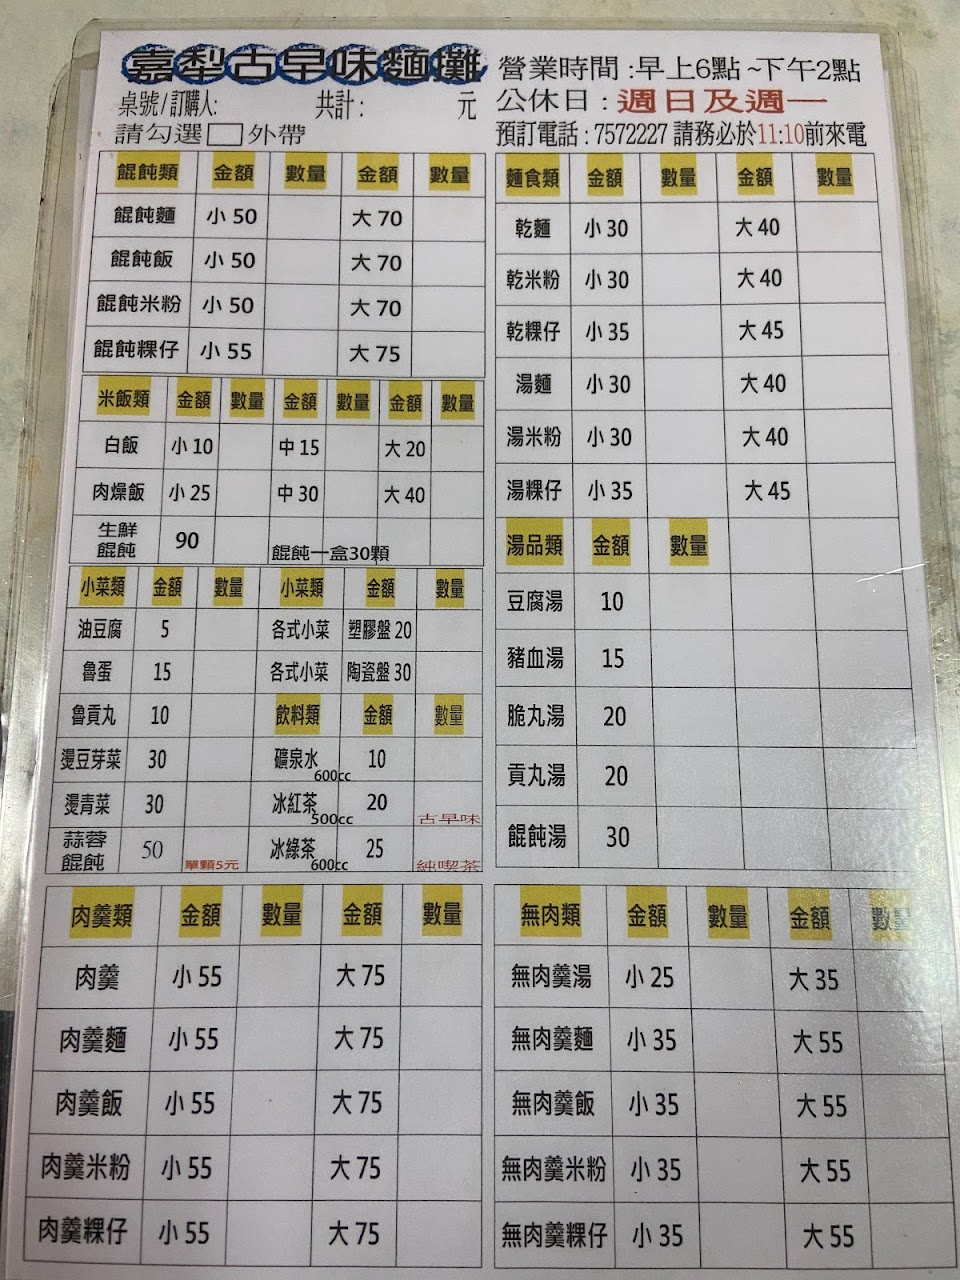 嘉犁古早味麵攤
桌號/訂購人: 共計: 元
請勾選□外帶
營業時間:早上6點~下午2點
公休日:週日及週一
預訂電話:7572227 請務必於11:10前來電
餛飩類 金額 數量 金額 數量
餛飩麵 小 50 大 70
餛飩飯 小 50 大 70
餛飩米粉 小 50 大 70
餛飩粿仔 小 55 大 75
米飯類 金額 數量 金額 數量 金額 數量
白飯 小 10 中 15 大 20
肉燥飯 小 25 中 30 大 40
生鮮餛飩 90 餛飩一盒30顆
小菜類 金額 數量 小菜類 金額 數量
油豆腐 5 各式小菜 塑膠盤 20
魯蛋 15 各式小菜 陶瓷盤 30
魯貢丸 10 飲料類 金額 數量
燙豆芽菜 30 礦泉水 600cc 10
燙青菜 30 冰紅茶 500cc 20 古早味
蒜蓉餛飩 50 單顆5元 冰綠茶 600cc 25 純喫茶
麵食類 金額 數量 金額 數量
乾麵 小 30 大 40
乾米粉 小 30 大 40
乾粿仔 小 35 大 45
湯麵 小 30 大 40
湯米粉 小 30 大 40
湯粿仔 小 35 大 45
湯品類 金額 數量
豆腐湯 10
豬血湯 15
脆丸湯 20
貢丸湯 20
餛飩湯 30
肉羹類 金額 數量 金額 數量
肉羹 小 55 大 75
肉羹麵 小 55 大 75
肉羹飯 小 55 大 75
肉羹米粉 小 55 大 75
肉羹粿仔 小 55 大 75
無肉類 金額 數量 金額 數量
無肉羹湯 小 25 大 35
無肉羹麵 小 35 大 55
無肉羹飯 小 35 大 55
無肉羹米粉 小 35 大 55
無肉羹粿仔 小 35 大 55